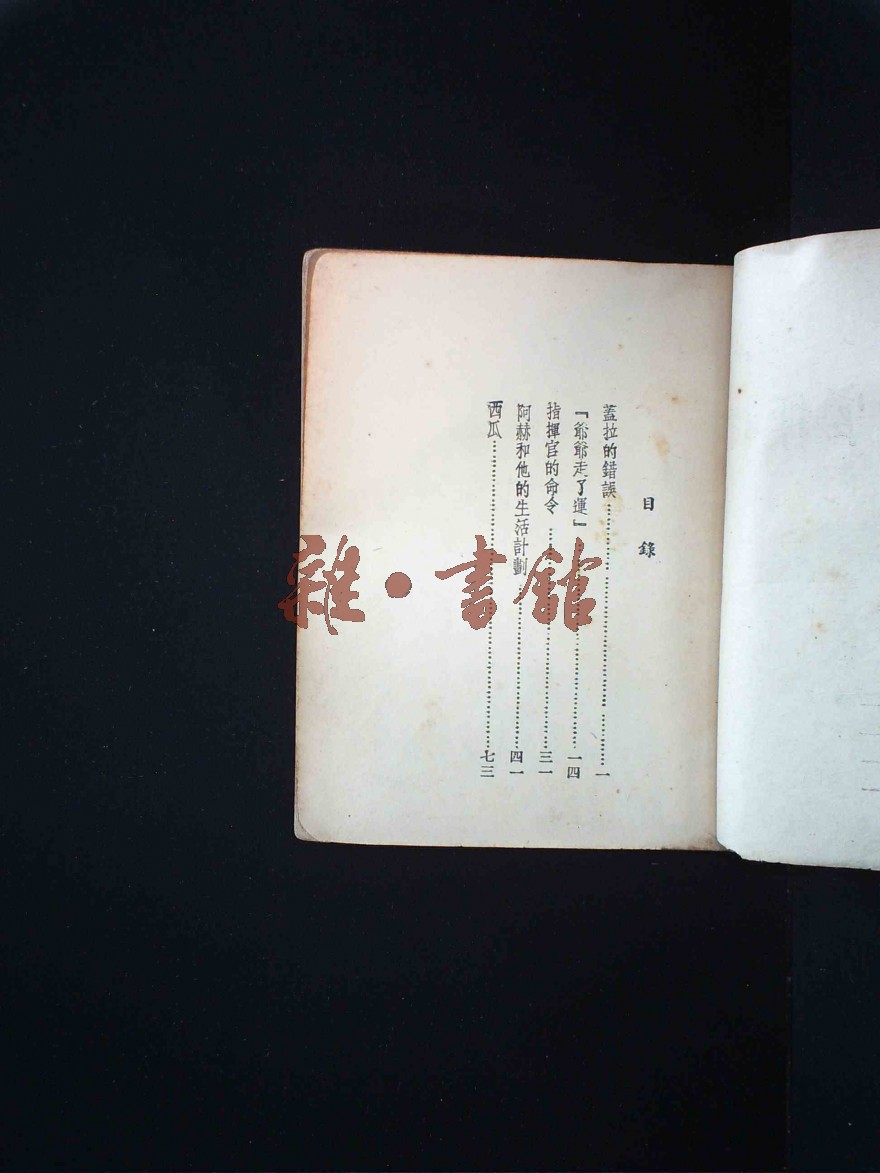 目錄
蓋拉的錯誤……………………………一
「爺爺走了運」……………………一四
指揮官的命令……………………三一
阿赫和他的生活計劃………………四一
西瓜……………………………七三
雜·書館